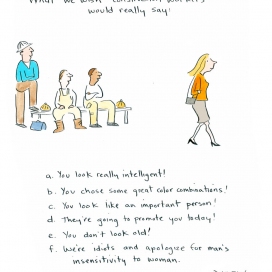 would really say:
a. You look really intelligent!
b. You chose some great color combinations!
c. You look like an important person!
d. They're going to promote you today!
e. You don't look old!
f. We're idiots and apologize for man's
insensitivity to woman.